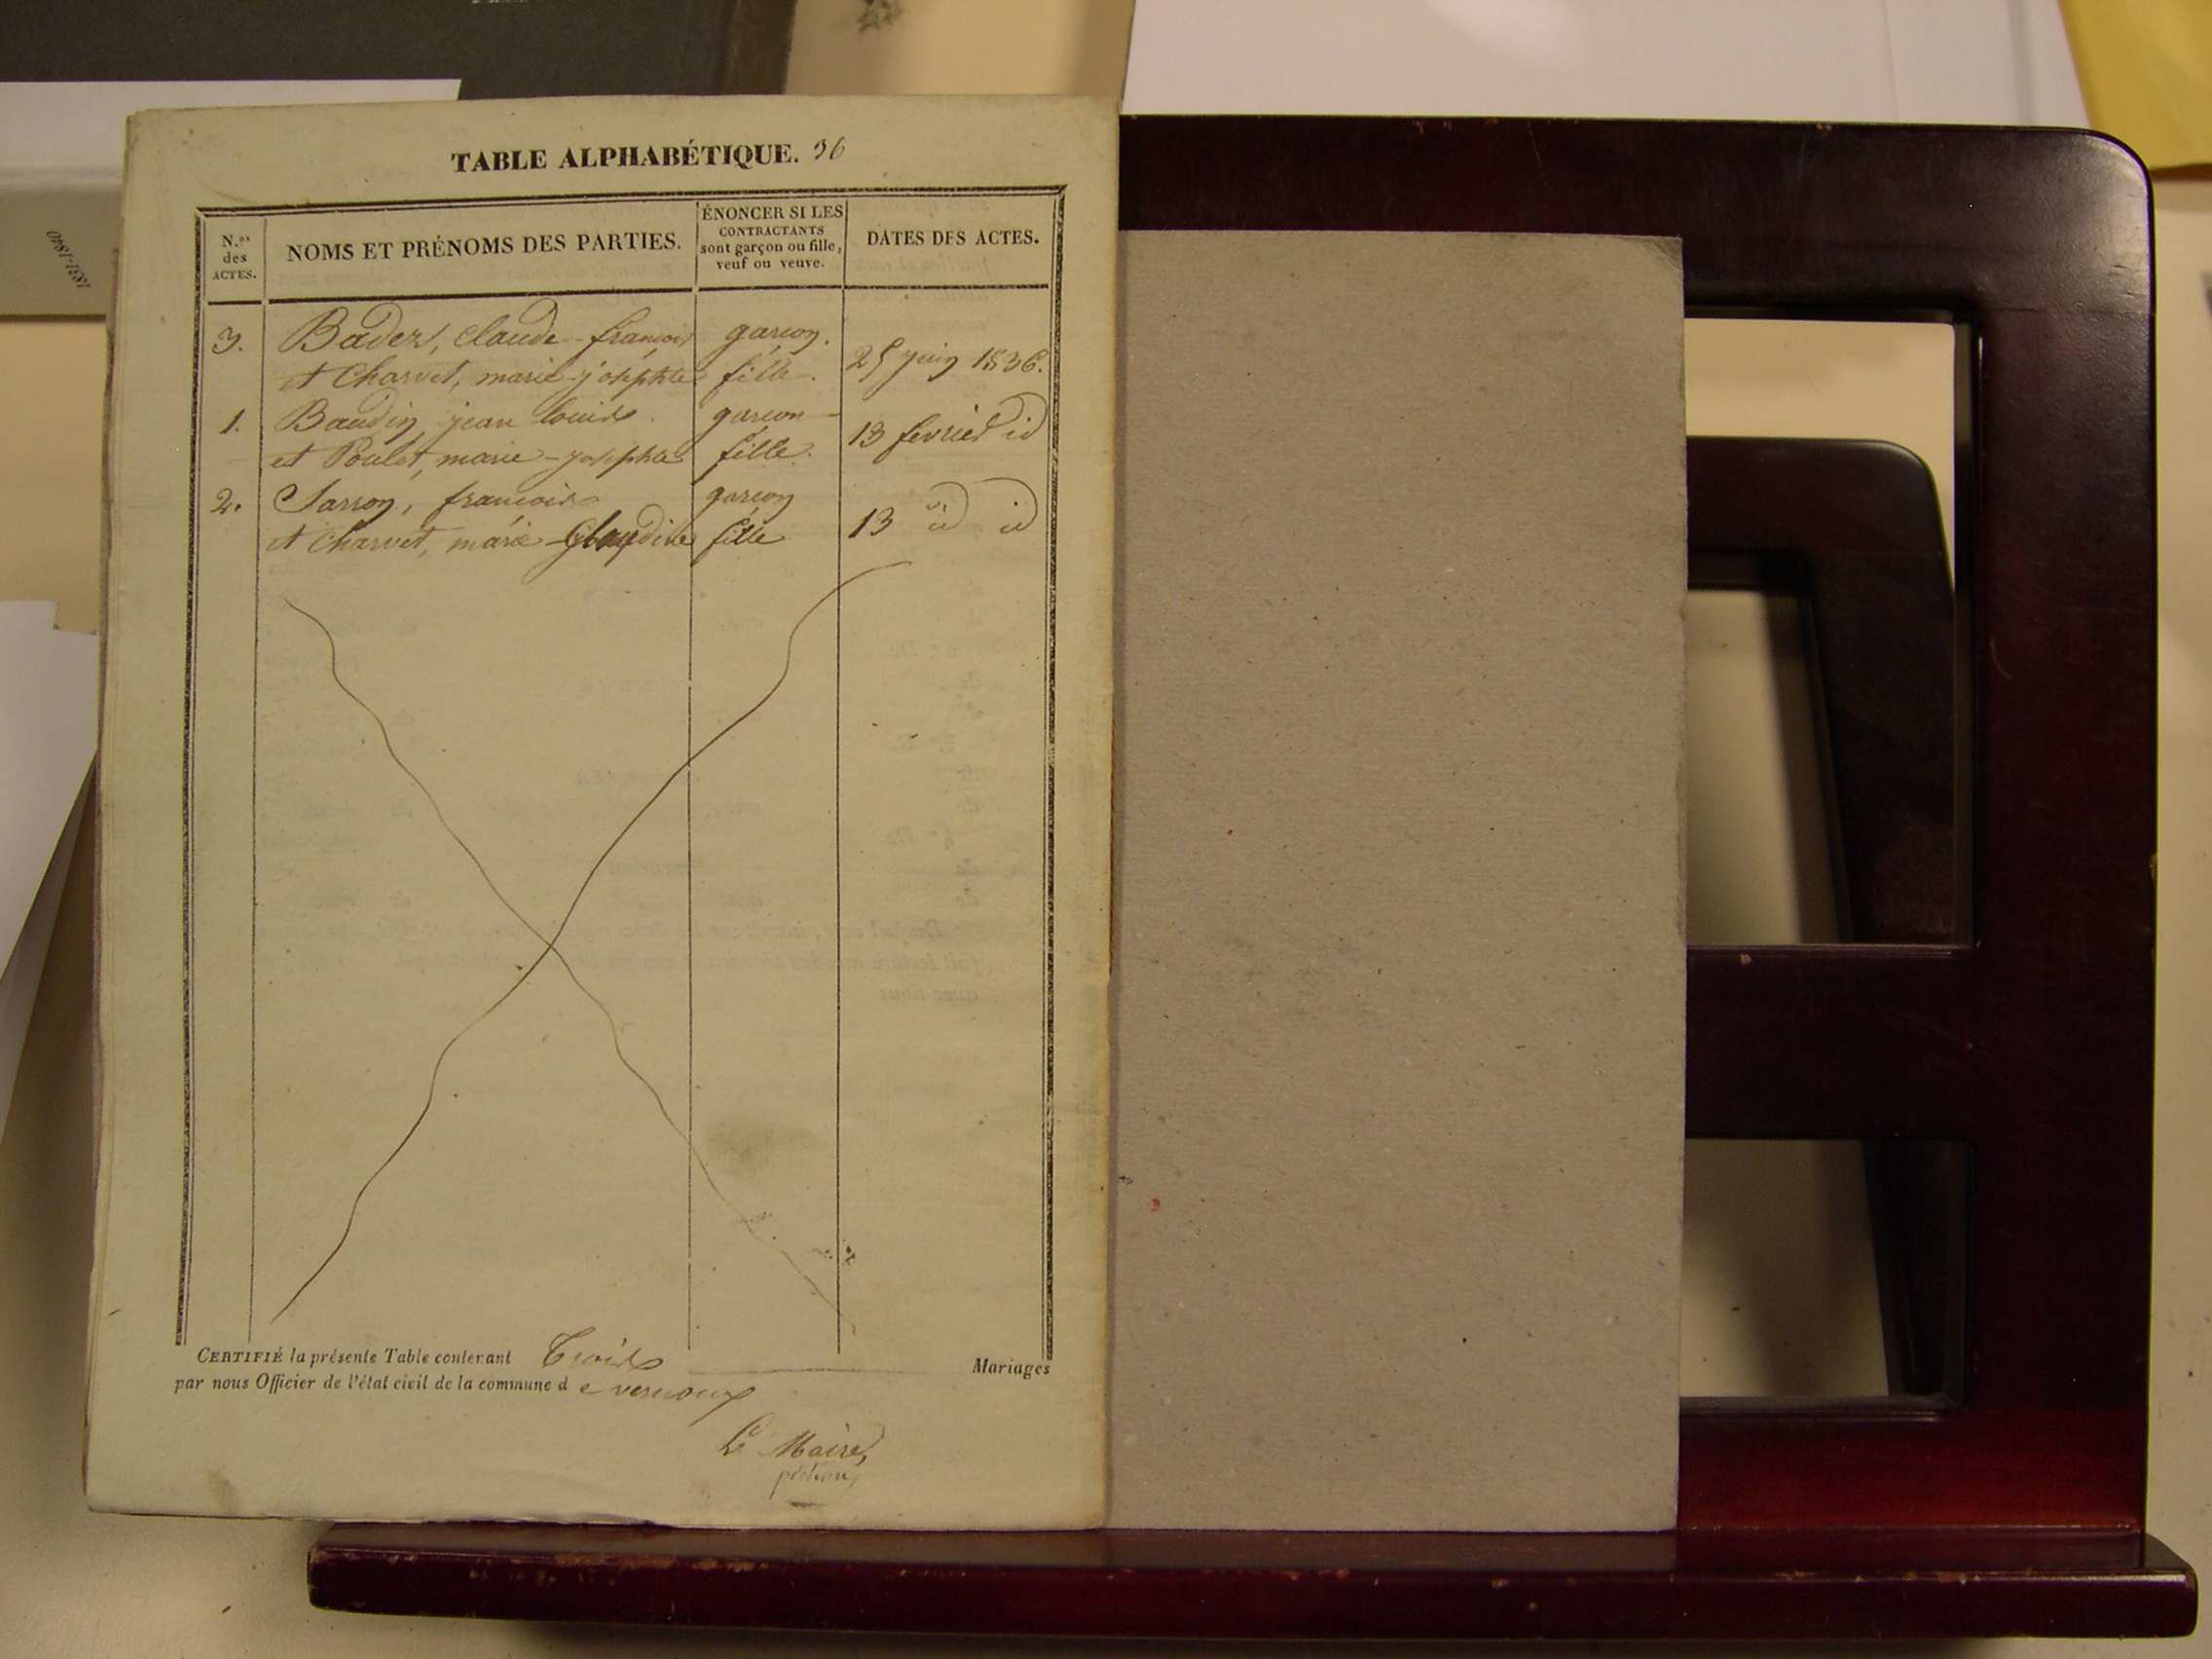 TABLE ALPHABÉTIQUE. 36
N.os des ACTES.
NOMS ET PRÉNOMS DES PARTIES.
ÉNONCER SI LES CONTRACTANTS sont garçon ou fille, veuf ou veuve.
DATES DES ACTES.
3. Badez, claude-françois garçon.
et Charvet, marie-josephte fille. 25 juin 1836.
1. Baudin, jean louis garçon
et Poulet, marie-josephte fille. 13 fevrier id
2. Sarron, francois garçon
et charvet, marie-Glaudine fille 13 id id
CERTIFIÉ la présente Table contenant Trois Mariages
par nous Officier de l'état civil de la commune de vernoux
Le Maire,
1831-1840